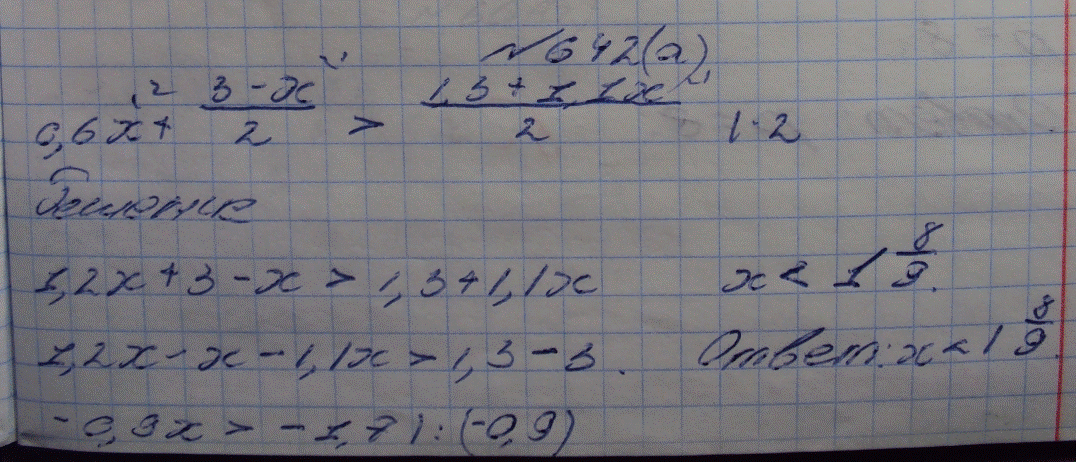 № 642(а)
0,6x + (3 - x)/2 > (1,3 + 1,1x)/2 | · 2
Решение
1,2x + 3 - x > 1,3 + 1,1x
1,2x - x - 1,1x > 1,3 - 3.
-0,9x > -1,7 | : (-0,9)
x < 1 8/9.
Ответ: x < 1 8/9.